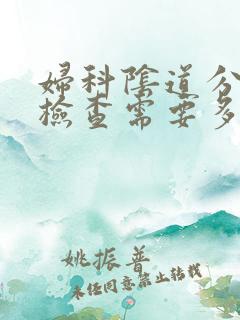 婦科陰道分
檢查需要多
姚振普
未任同意禁止转载